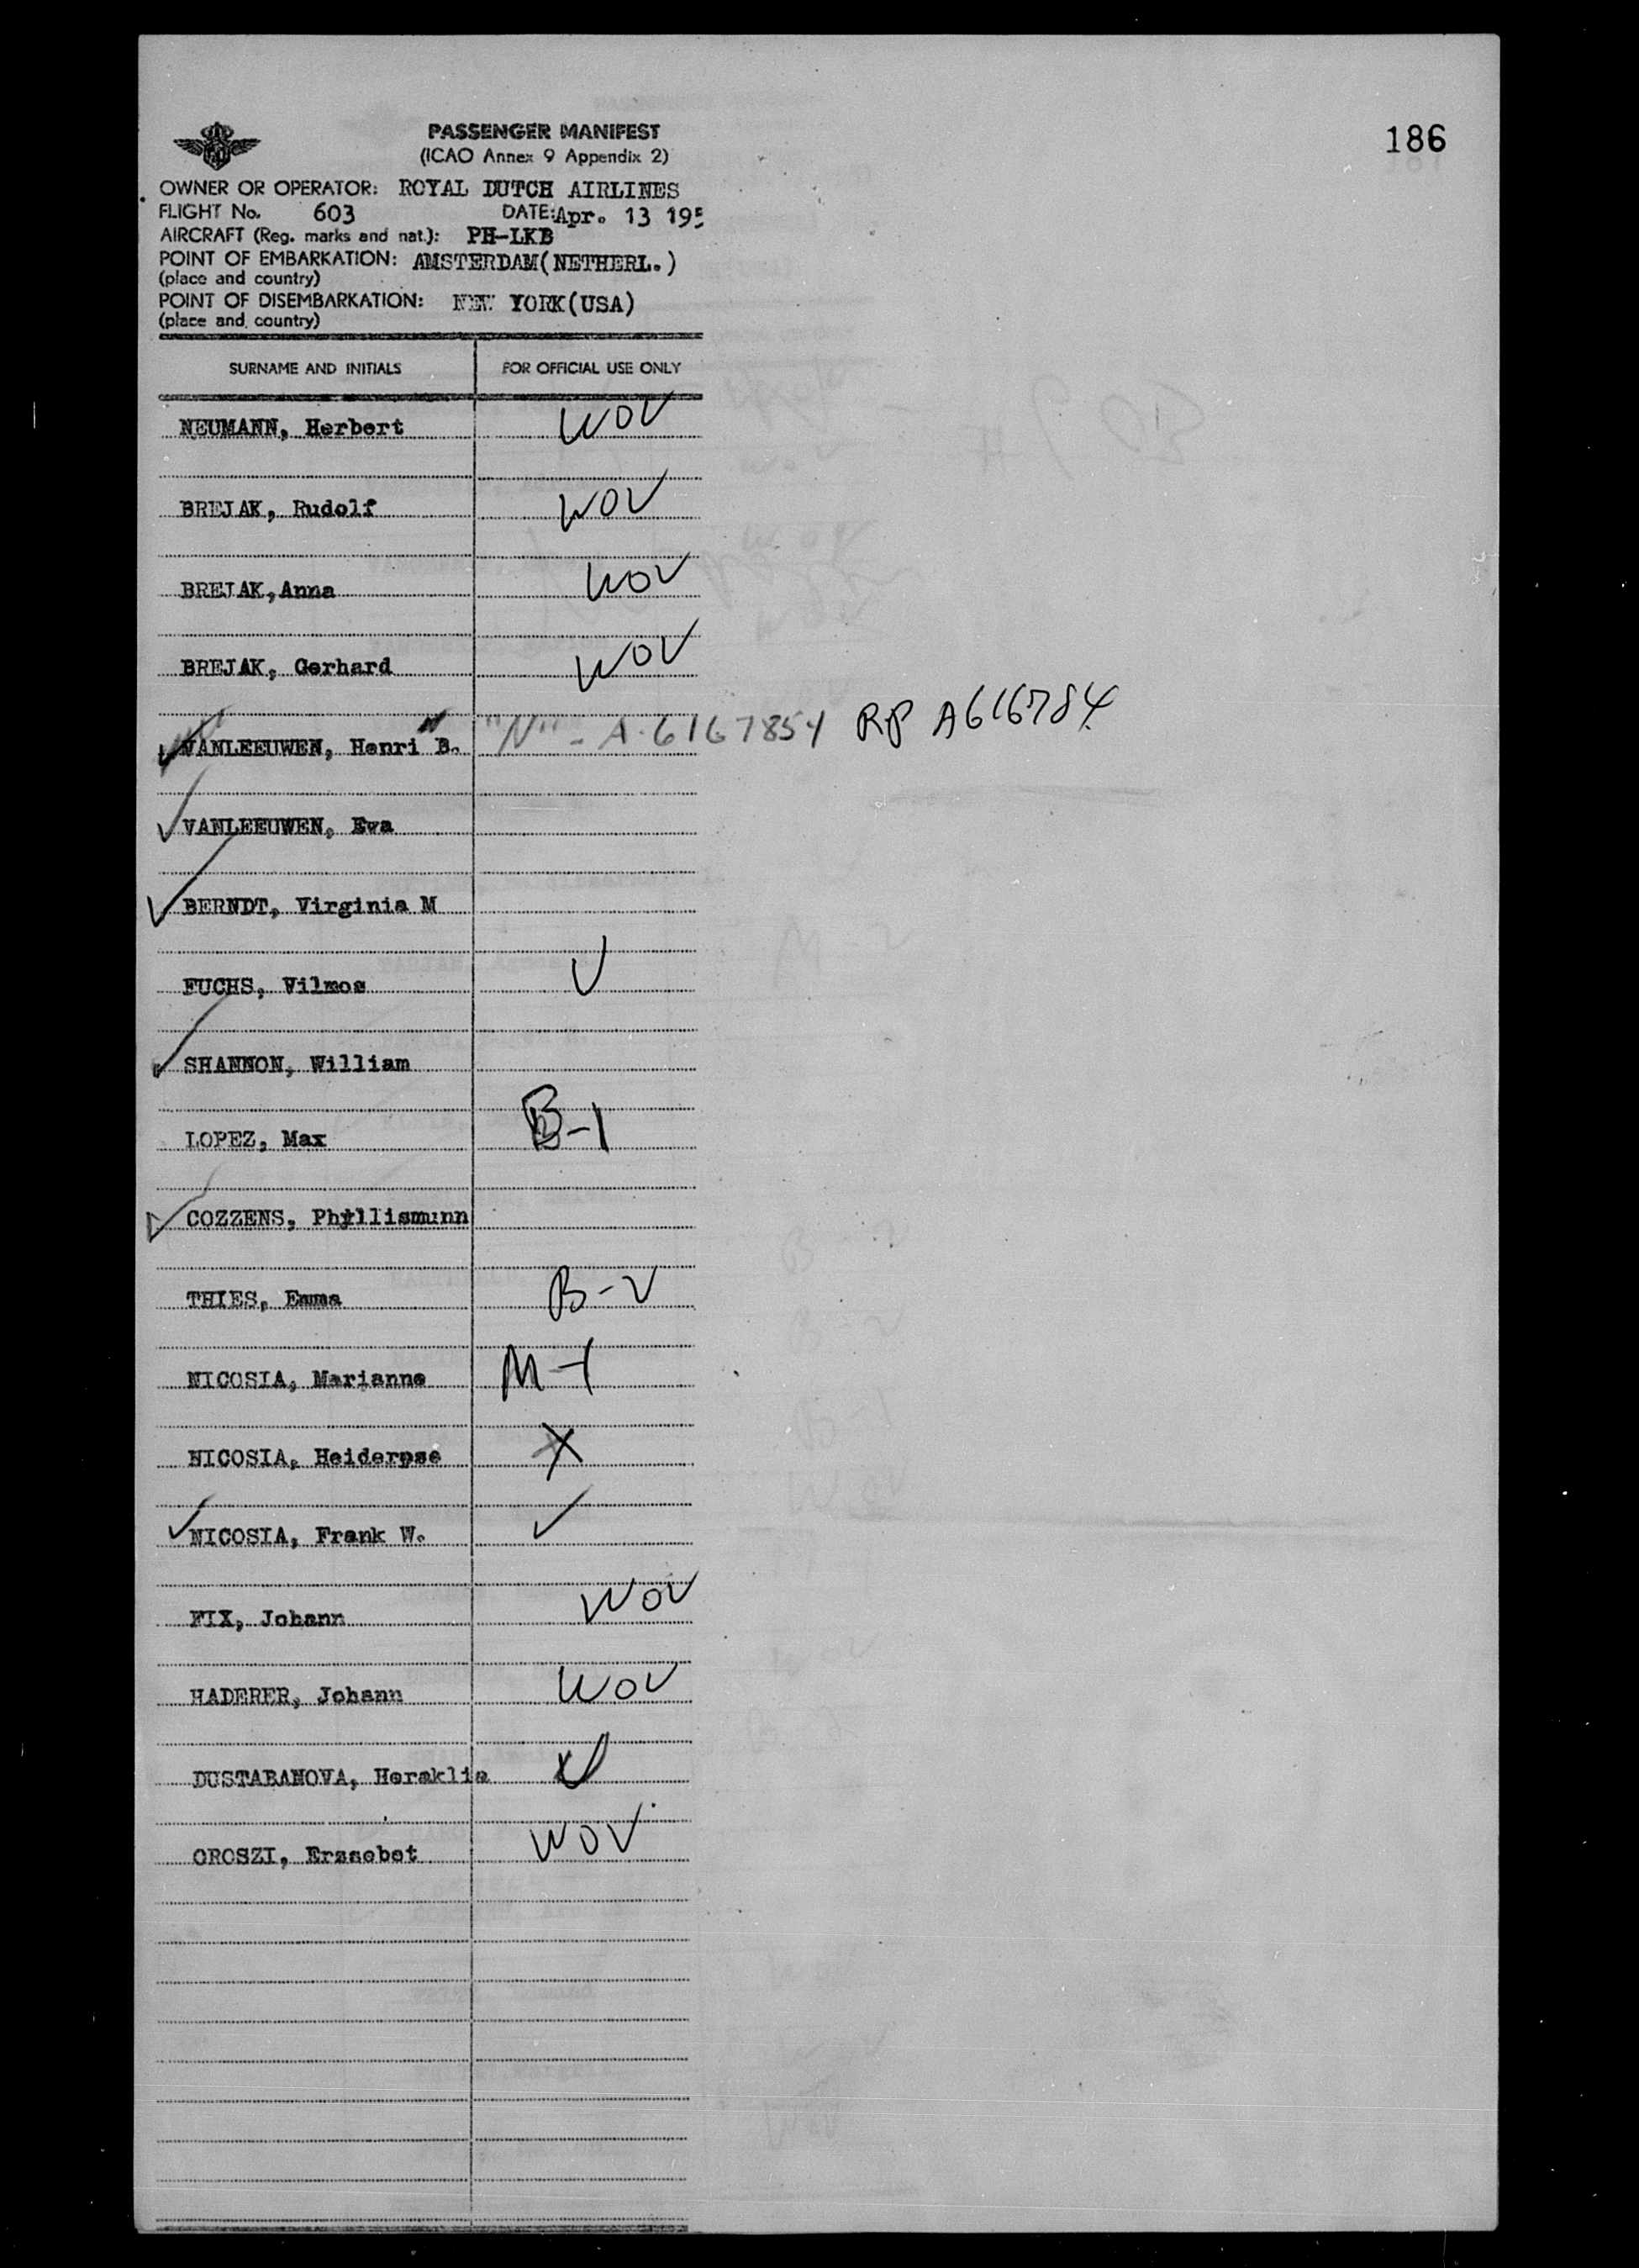 186
PASSENGER MANIFEST
(ICAO Annex 9 Appendix 2)
OWNER OR OPERATOR: ROYAL DUTCH AIRLINES
FLIGHT No. 603 DATE: Apr. 13 195
AIRCRAFT (Reg. marks and nat.): PH-LKB
POINT OF EMBARKATION: AMSTERDAM(NETHERL.)
(place and country)
POINT OF DISEMBARKATION: NEW YORK(USA)
(place and country)
SURNAME AND INITIALS FOR OFFICIAL USE ONLY
NEUMANN, Herbert WOV
BREJAK, Rudolf WOV
BREJAK,Anna WOV
BREJAK, Gerhard WOV
VANLEEUWEN, Henri B. "N" - A-6167854 RP A616784
VANLEEUWEN, Eva
BERNDT, Virginia M
FUCHS, Vilmos
SHANNON, William
LOPEZ, Max B-1
COZZENS, Phyllismunn
THIES, Emma B-2
NICOSIA, Marianne M-1
NICOSIA, Heiderpse X
NICOSIA, Frank W.
FIX, Johann WOV
HADERER, Johann WOV
DUSTABANOVA, Heraklia
OROSZI, Erzsebet WOV